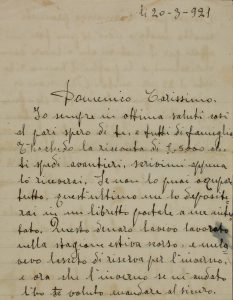 li 20-3-921
Domenico Carissimo.
Io sempre in ottima saluti così
al pari spero di te, e tutti di famiglia
T'accludo la rimonta di £,5000 che
ti spedì avantieri, scrivimi appena
lo riceverai. Se non lo puoi
tutto, quest'ultimo me lo deposite
rai in un libretto postale a me
tato. Questo denaro l'avevo lavorato
nella stagione estiva scorso, e me l'
avevo lascito di riserva per l'inverno,
e ora che l'inverno se n'andato
l'ho te voluto mandare al sicuro.